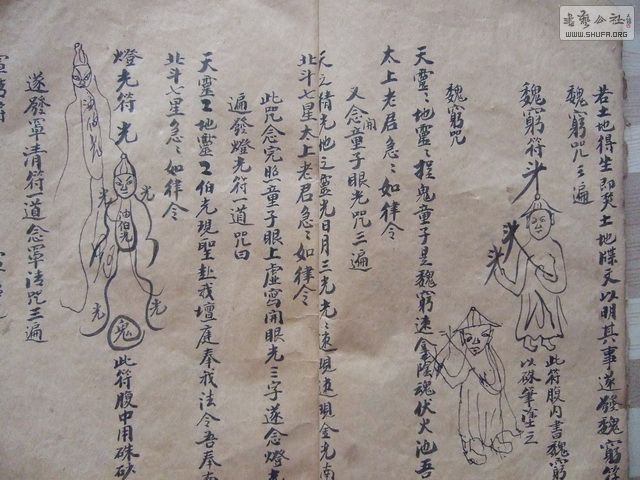 若土地得生即焚土地牒文以明其事遂發魏窮符
魏窮咒三遍
魏窮符
斗
斗
斗
此符腹内書魏窮
以硃筆塗之
魏窮咒
天靈〻地靈〻捉鬼童子是魏窮速拿陰魂伏火池吾
太上老君急〻如律令
又念開童子眼光咒三遍
天之清光地之靈光日月三光光〻速現速現金光南
北斗七星太上老君急〻如律令
此咒念完照童子眼上虛寫開眼光三字遂念燈光
遍發燈光符一道咒曰
天靈〻地靈〻油伯光現聖赴我壇庭奉我法令吾奉南
北斗七星急〻如律令
燈光符
光
光
光
油伯光
光
光
鬼
此符腹中用硃砂
遂發罩清符一道念罩法咒三遍
書藝公社
WWW.SHUFA.ORG